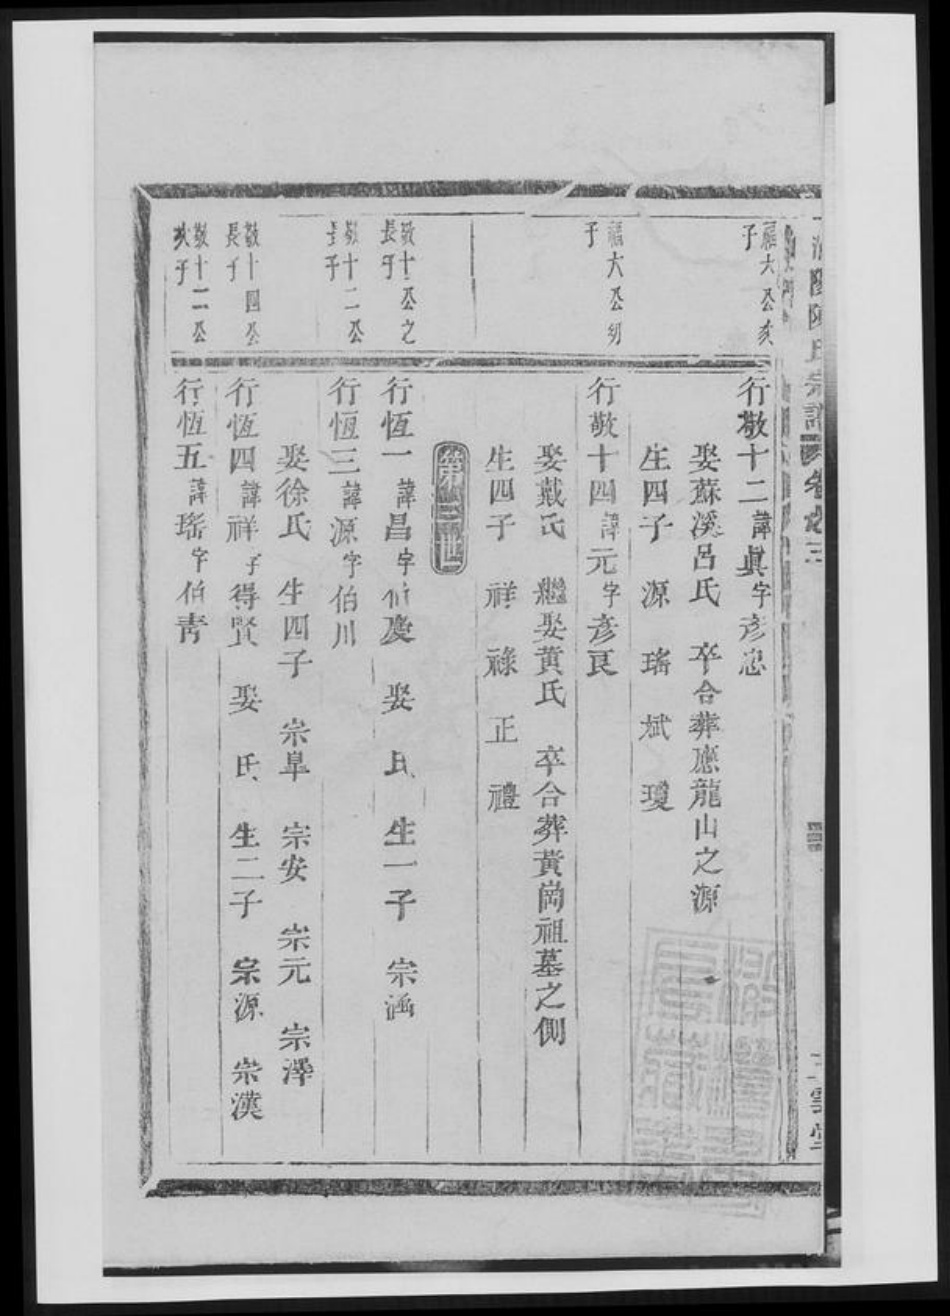 陳氏宗譜 卷之三
福大公次子
行敬十二諱真字彥忠
娶蘇溪呂氏 卒合葬應龍山之源
生四子 源 瑤 斌 瓊
福大公幼子
行敬十四諱元字彥良
娶戴氏 繼娶黃氏 卒合葬黃崗祖墓之側
生四子 祥 祿 正 禮
敬十公之長子
行恆一諱昌字伯慶 娶 氏 生一子 宗涵
敬十二公長子
行恆三諱源字伯川
娶徐氏 生四子 宗皐 宗安 宗元 宗澤
敬十四公長子
行恆四諱祥字得賢 娶 氏 生二子 宗源 宗漢
敬十二公次子
行恆五諱瑤字伯青